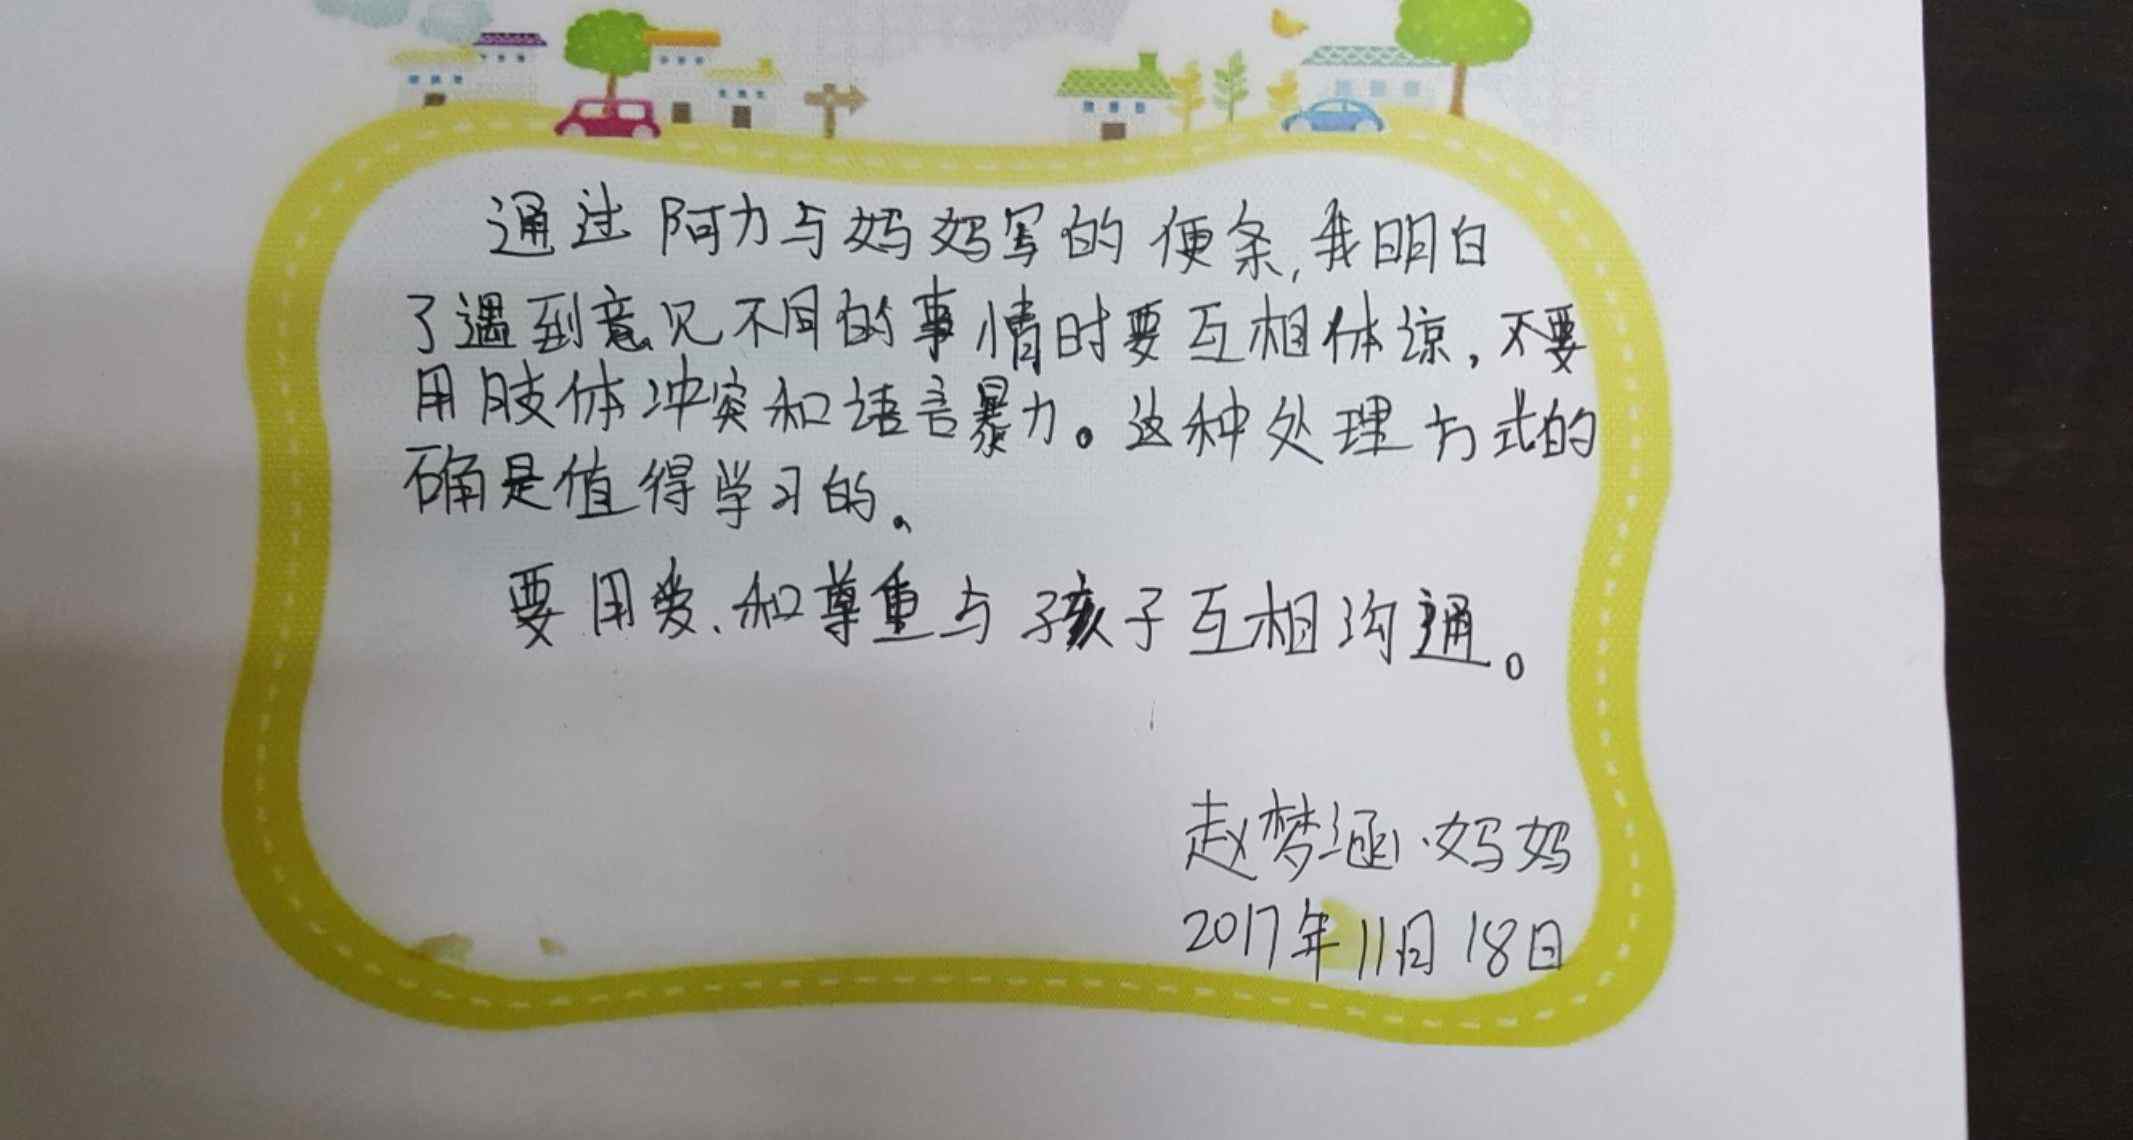 通过阿力与妈妈写的便条,我明白
了遇到意见不同的事情时要互相体谅,不要
用肢体冲突和语言暴力。这种处理方式的
确是值得学习的。
要用爱、和尊重与孩子互相沟通。
赵梦涵·妈妈
2017年11月18日